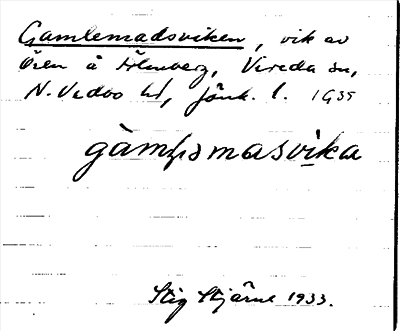 Gamlemadsviken, vik av
å Ölmberg, Vireda sn,
N. Vedbo hd, Jönk. l. 1935
gàmḷəmasvika
Stig Stjärne 1933.